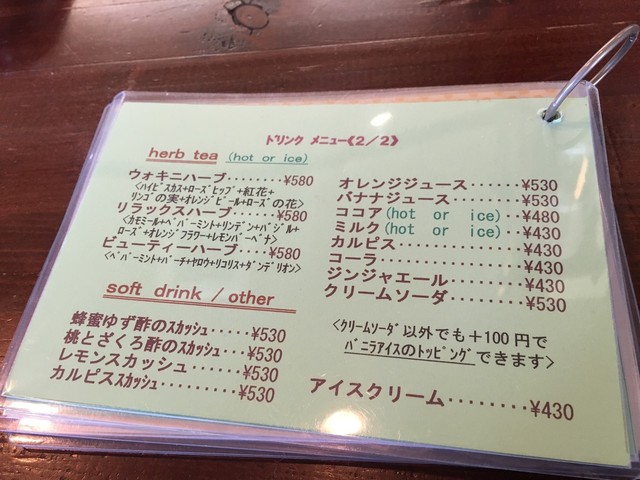 ドリンク メニュー《2/2》
herb tea (hot or ice)
ウォキニハーブ・・・・・・¥580
<ハイビスカス+ローズヒップ+紅花+
リンゴの実+オレンジピール+ローズの花>
リラックスハーブ・・・・・¥580
<カモミール+ペパーミント+リンデン+バジル+
ローズ+オレンジフラワー+レモンバーベナ>
ビューティーハーブ・・・・¥580
<ペパーミント+バーチ+ヤロウ+リコリス+ダンデリオン>
soft drink / other
蜂蜜ゆず酢のスカッシュ・・・・・¥530
桃とざくろ酢のスカッシュ・・・・¥530
レモンスカッシュ・・・・・・¥530
カルピススカッシュ・・・・・・・¥530
オレンジジュース・・・・・・¥530
バナナジュース・・・・・・・¥530
ココア(hot or ice)・・¥480
ミルク(hot or ice)・・¥430
カルピス・・・・・・・・・・¥430
コーラ・・・・・・・・・・・¥430
ジンジャエール・・・・・・・¥430
クリームソーダ・・・・・・・¥530
<クリームソーダ以外でも+100円で
バニラアイスのトッピングできます>
アイスクリーム・・・・・・・・¥430